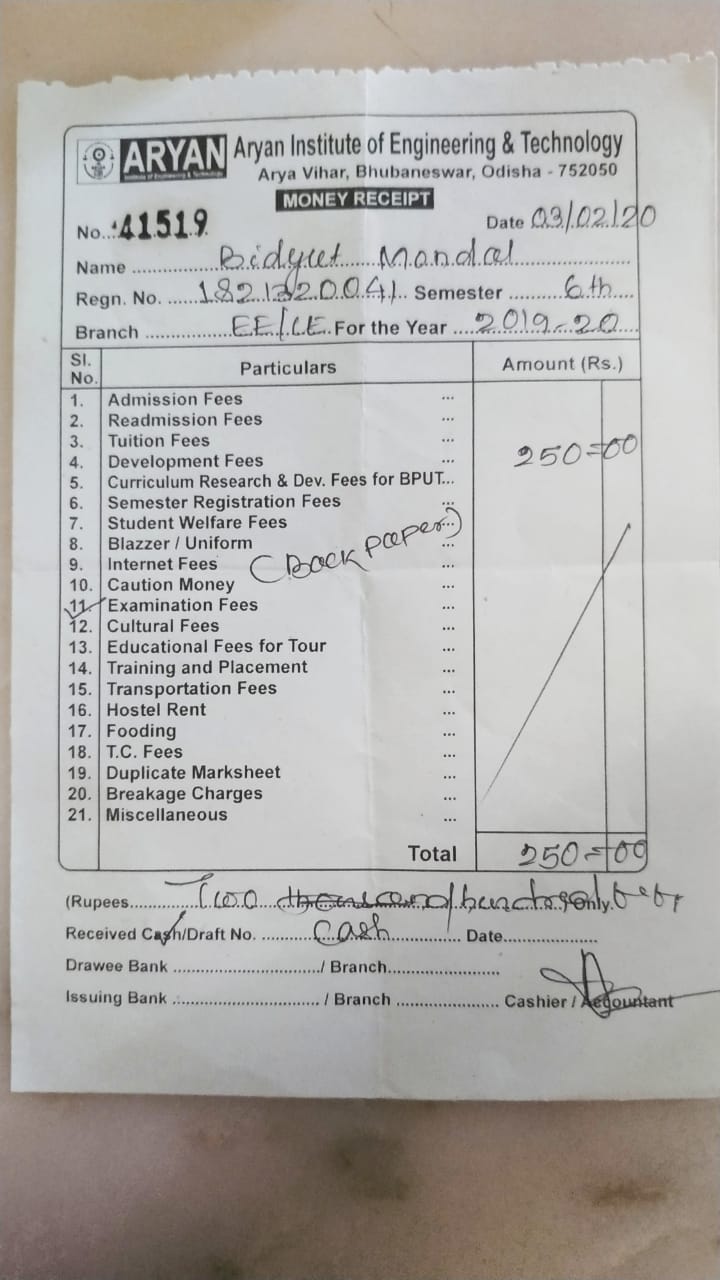 ARYAN Aryan Institute of Engineering & Technology
Institute of Engineering & Technology
Arya Vihar, Bhubaneswar, Odisha - 752050
MONEY RECEIPT
No...41519 Date 03/02/20
Name ..... Bidyut Mondal
Regn. No. ..... 1821320041 Semester ..... 6th
Branch ..... EE/CE For the Year .... 2019-20
Sl. No. Particulars Amount (Rs.)
1. Admission Fees ...
2. Readmission Fees ...
3. Tuition Fees ...
4. Development Fees ... 250=00
5. Curriculum Research & Dev. Fees for BPUT...
6. Semester Registration Fees ...
7. Student Welfare Fees ...
8. Blazzer / Uniform ...
(Back paper)
9. Internet Fees ...
10. Caution Money ...
11. Examination Fees ...
12. Cultural Fees ...
13. Educational Fees for Tour ...
14. Training and Placement ...
15. Transportation Fees ...
16. Hostel Rent ...
17. Fooding ...
18. T.C. Fees ...
19. Duplicate Marksheet ...
20. Breakage Charges ...
21. Miscellaneous ...
Total 250=00
(Rupees..... Two hundred Only.
Received Cash/Draft No. ..... Cash ..... Date.....
Drawee Bank ...../ Branch.....
Issuing Bank ...../ Branch ..... Cashier / Accountant